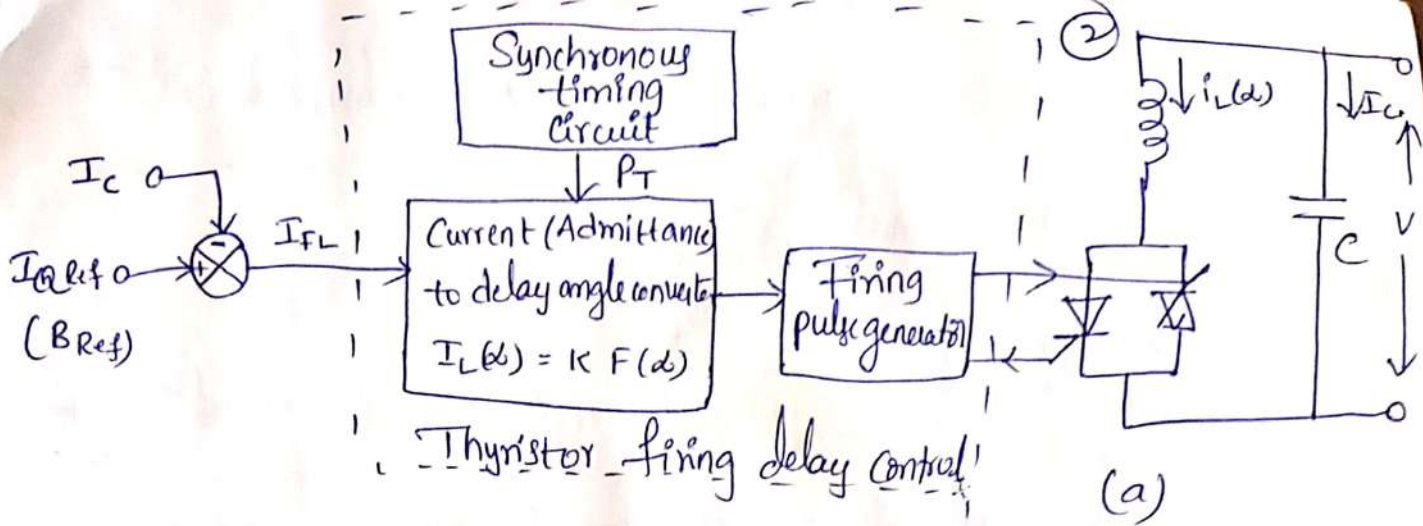 ②
Synchronous
timing
circuit
P_T
I_C
I_QRef
(B_Ref)
-
+
I_FL
Current (Admittance)
to delay angle converter
I_L(α) = K F(α)
Firing
pulse generator
i_L(α)
I_C
V
C
Thyristor firing delay control
(a)